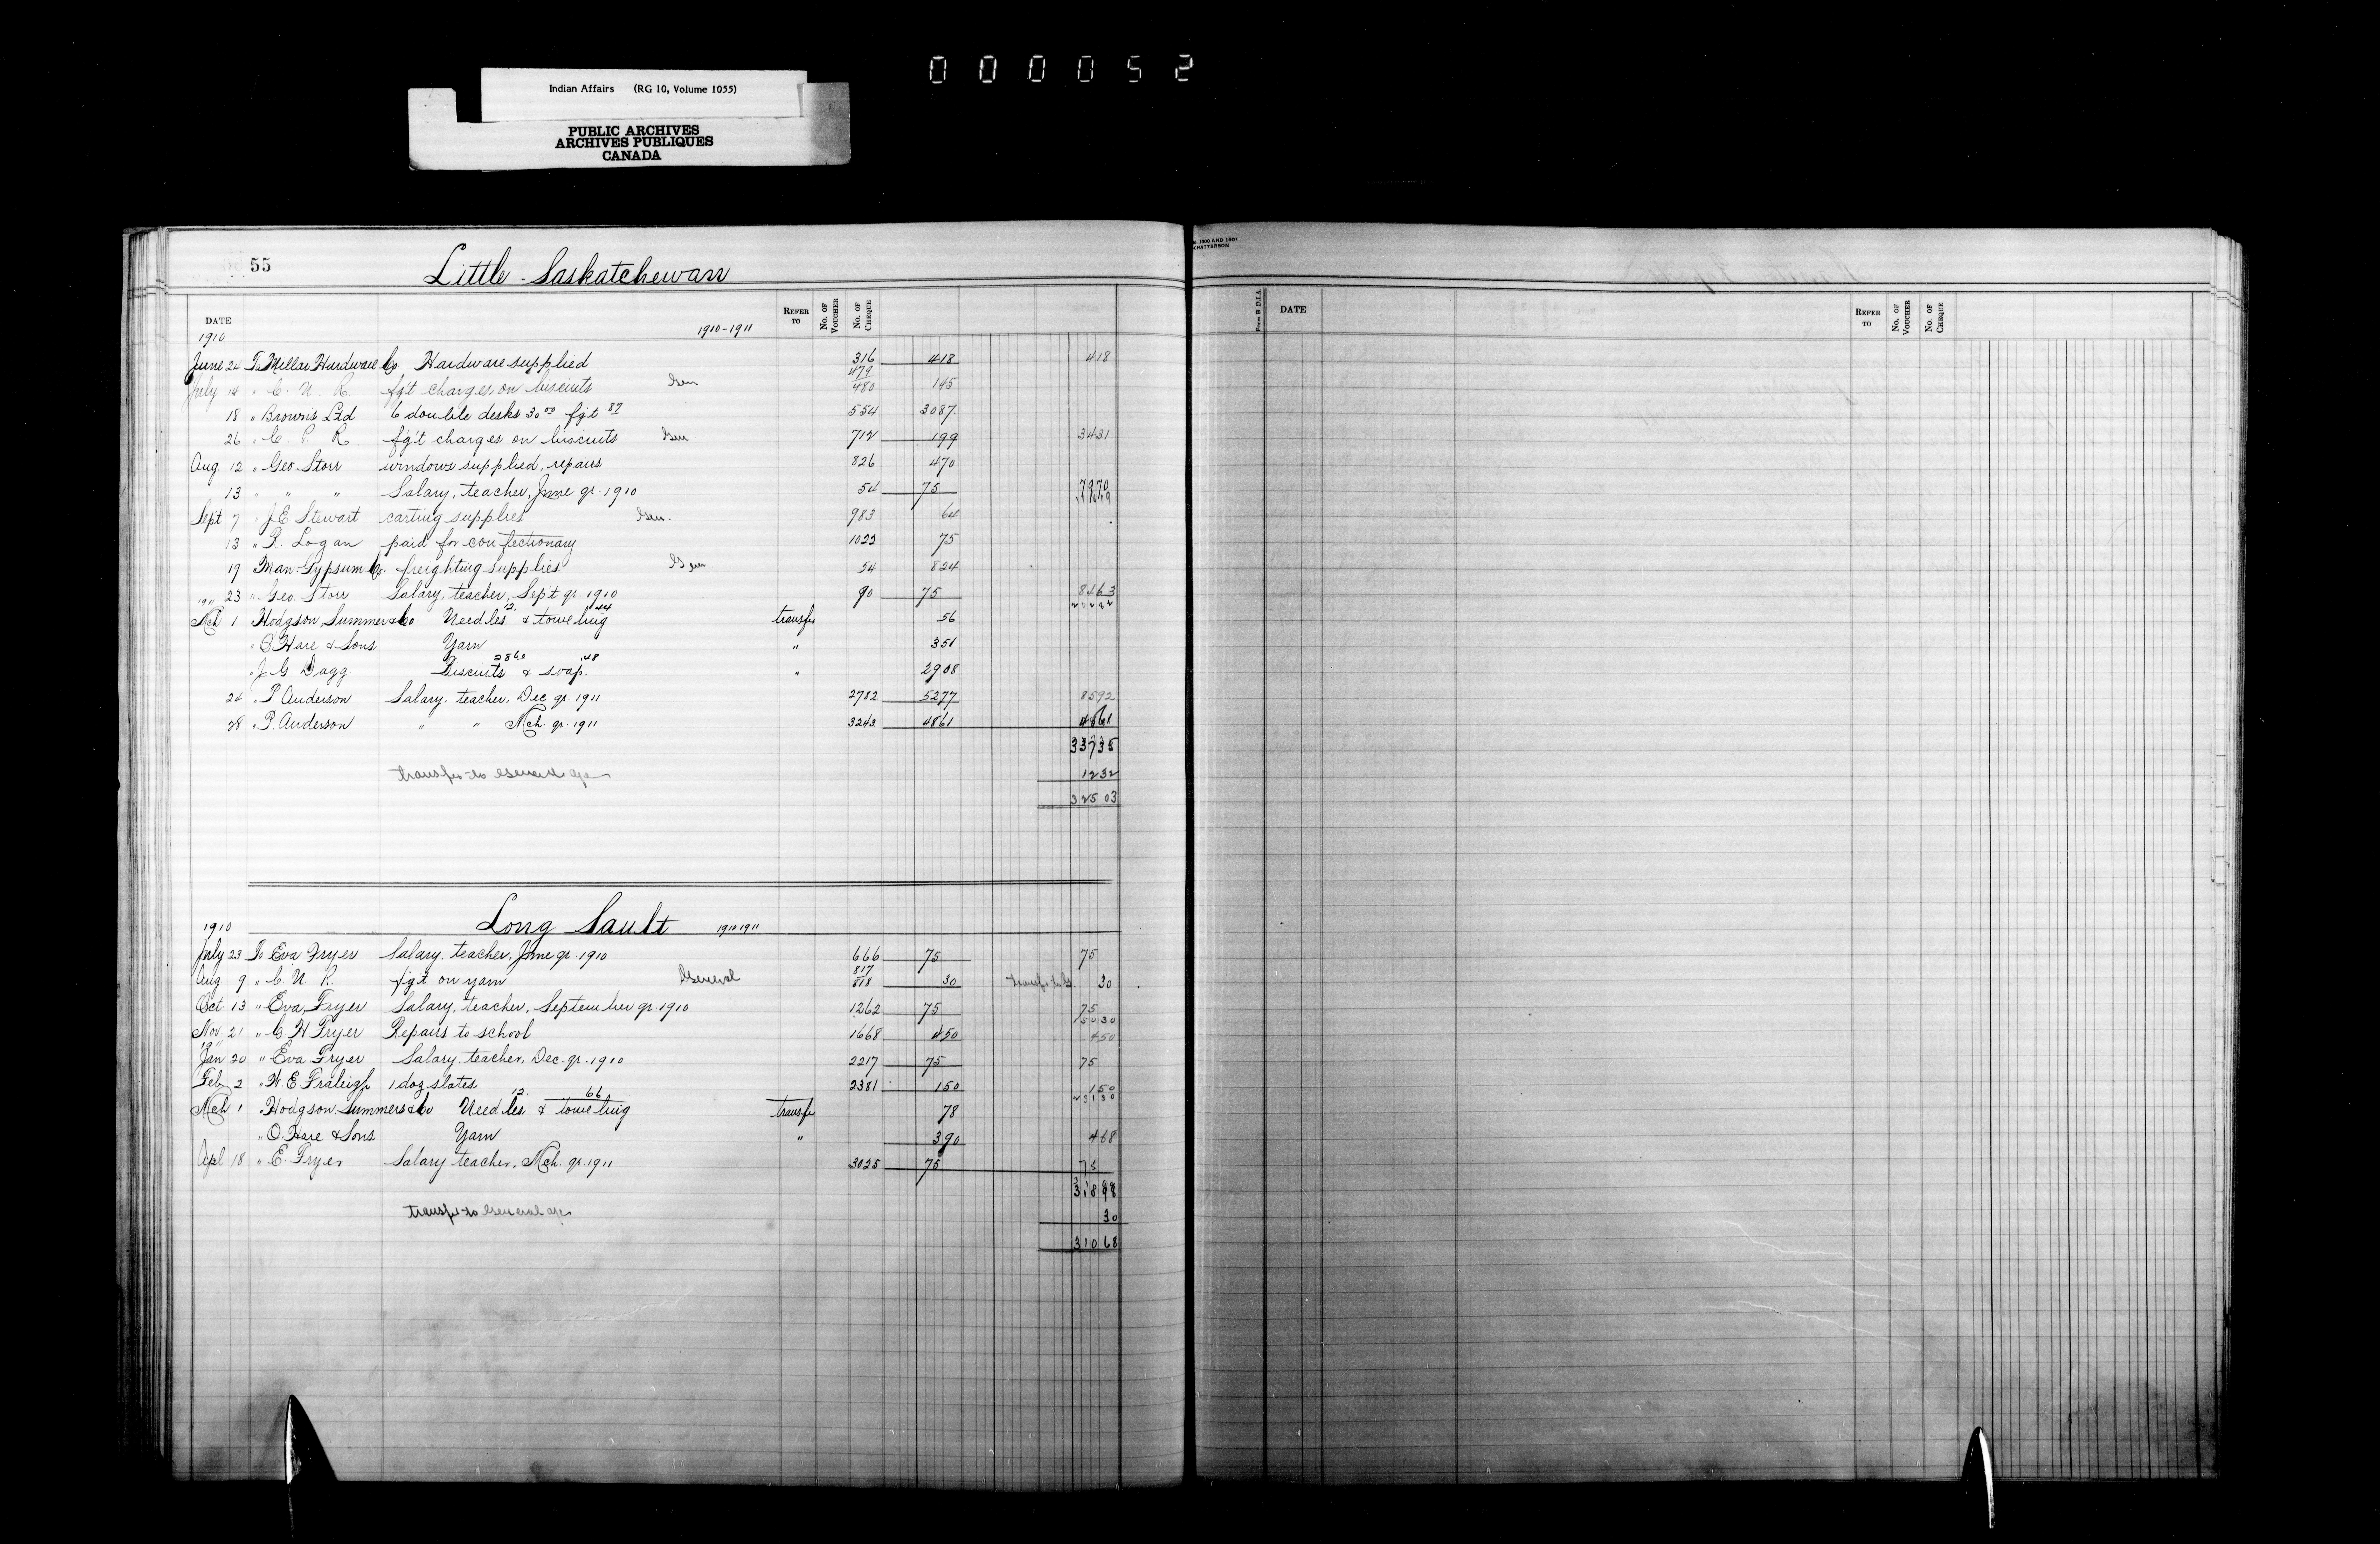 000052
Indian Affairs (RG 10, Volume 1055)
PUBLIC ARCHIVES
ARCHIVES PUBLIQUES
CANADA
55
Little Saskatchewan
DATE REFER TO No. OF VOUCHER No. OF CHEQUE
1910 1910-1911
June 24 To Millar Hardware Co. Hardware supplied 316 418 418
479
July 14 " C. N. R. fg't charges on biscuits Gen 480 145
18 " Browns Ltd 6 double desks 30 00 fg't .87 554 3087
26 " C. P. R. fg't charges on biscuits Gen 712 199 3431
Aug. 12 " Geo Storr windows supplied, repairs 826 470
13 " " " Salary, teacher, June qr. 1910 54 75 7970
Sept 7 " J.E. Stewart carting supplies Gen. 983 64
13 " R. Logan paid for confectionary 1023 75
19 " Man. Gypsum Co. freighting supplies Gen 54 824
23 " Geo. Storr Salary, teacher, Sept qr. 1910 90 75 8463
1911 12 44 20234
Mch 1 Hodgson, Sumner & Co. Needles & toweling transfer 56
" O'Hare & Sons Yarn " 351
2860 .48
" J G Dagg. Biscuits & soap. " 2908
24 " P Anderson Salary, teacher, Dec. qr. 1911 2782 5277 8592
28 " P. Anderson " " Mch. qr. 1911 3243 4861 4861
33735
transfer to General a/c 1232
32503
1910 Long Sault 1910 1911
July 23 To Eva Fryer Salary, teacher, June qr. 1910 666 75 75
817
Aug 9 " C. N. R. fg't on yarn General 818 30 30
Oct 13 " Eva Fryer Salary, teacher, September qr. 1910 1262 75 75
15030
Nov. 21 " C H Fryer Repairs to school 1668 450 450
1911
Jan 20 " Eva Fryer Salary, teacher, Dec. qr. 1910 2217 75 75
Feb 2 " W. E Fraleigh 1 doz slates 2381 150 150
12. 66 23130
Mch 1 " Hodgson, Summers & Co Needles & toweling transfer 78
" O. Hare & Sons Yarn " 390 468
Apl 18 " E. Fryer Salary teacher, Mch. qr. 1911 3025 75 75
transfer to General a/c 30
31068
Form B. D.I.A. DATE REFER TO No. OF VOUCHER No. OF CHEQUE